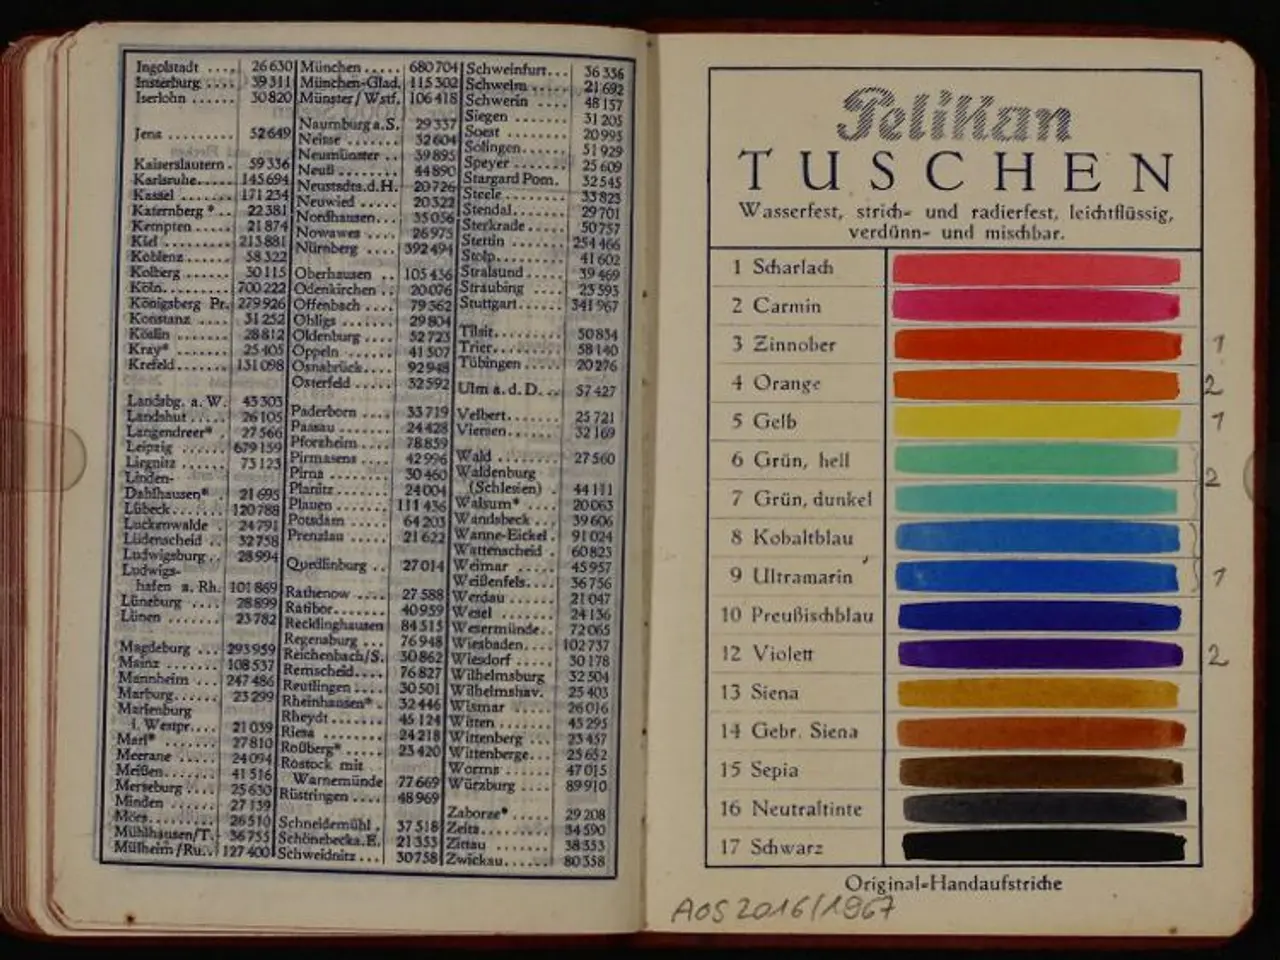 Ingolstadt .... 26630
Insterburg .... 39311
Iserlohn ...... 30820
Jena ......... 52649
Kaiserslautern . 59336
Karlsruhe..... 145694
Kassel ....... 171234
Katernberg * .. 22381
Kempten ..... 21874
Kiel ......... 213881
Koblenz ...... 58322
Kolberg ...... 30115
Köln......... 700222
Königsberg Pr. 279926
Konstanz ..... 31252
Köslin ....... 28812
Kray* ....... 25405
Krefeld ...... 131098
Landsbg. a. W. 43303
Landshut ..... 26105
Langendreer* . 27566
Leipzig ...... 679159
Liegnitz ...... 73123
Linden-
Dahlhausen* . 21695
Lübeck....... 120788
Luckenwalde . 24791
Lüdenscheid .. 32758
Ludwigsburg .. 28994
Ludwigs-
hafen a. Rh. 101869
Lüneburg .... 28899
Lünen ...... 23782
Magdeburg ... 293959
Mainz ....... 108537
Mannheim ... 247486
Marburg...... 23299
Marienburg
i. Westpr.... 21039
Marl* ....... 27810
Meerane ..... 24094
Meißen....... 41516
Merseburg .... 25630
Minden ...... 27139
Mörs......... 26510
Mühlhausen/T.. 36755
Mülheim/Ru... 127400
München ..... 680704
München-Glad. 115302
Münster/Wstf. 106418
Naumburg a. S. 29337
Neisse ....... 32604
Neumünster .. 39895
Neuß ........ 44890
Neustadt a. d. H. 20726
Neuwied ..... 20322
Nordhausen... 35056
Nowawes .... 26975
Nürnberg .... 392494
Oberhausen .. 105436
Odenkirchen .. 20076
Offenbach .... 79362
Ohligs ....... 29804
Oldenburg .... 52723
Oppeln ...... 41507
Osnabrück.... 92948
Osterfeld ..... 32592
Paderborn .... 33719
Passau ....... 24428
Pforzheim .... 78859
Pirmasens .... 42996
Pirna ........ 30460
Planitz ....... 24004
Plauen ....... 111436
Potsdam ..... 64203
Prenzlau ..... 21622
Quedlinburg .. 27014
Rathenow .... 27588
Ratibor....... 40959
Recklinghausen 84515
Regensburg ... 76948
Reichenbach/S. 30862
Remscheid.... 76827
Reutlingen.... 30501
Rheinhausen* . 32446
Rheydt....... 45124
Riesa ........ 24218
Roßberg* ..... 23420
Rostock mit
Warnemünde 77669
Rüstringen .... 48969
Schneidemühl . 37518
Schönebeck a. E. 21353
Schweidnitz ... 30758
Schweinfurt... 36336
Schwelm ..... 21692
Schwerin .... 48157
Siegen ....... 31205
Soest ........ 20995
Solingen..... 51929
Speyer ...... 25609
Stargard Pom. 32545
Steele ....... 33823
Stendal...... 29701
Sterkrade .... 50757
Stettin ....... 254466
Stolp........ 41602
Stralsund .... 39469
Straubing .... 23593
Stuttgart..... 341967
Tilsit........ 50834
Trier........ 58140
Tübingen .... 20276
Ulm a. d. D... 57427
Velbert...... 25721
Viersen...... 32169
Wald ....... 27560
Waldenburg
(Schlesien) . 44111
Walsum* .... 20063
Wandsbeck ... 39606
Wanne-Eickel . 91024
Wattenscheid . 60823
Weimar ..... 45957
Weißenfels.... 36756
Werdau ..... 21047
Wesel ...... 24136
Wesermünde.. 72065
Wiesbaden... 102737
Wiesdorf .... 30178
Wilhelmsburg 32504
Wilhelmshav. 25403
Wismar ..... 26016
Witten ...... 45295
Wittenberg ... 23457
Wittenberge... 25652
Worms ...... 47015
Würzburg ... 89910
Zaborze* ..... 29208
Zeitz........ 34590
Zittau ....... 38353
Zwickau..... 80358
Pelikan
TUSCHEN
Wasserfest, strich- und radierfest, leichtflüssig,
verdünn- und mischbar.
1 Scharlach
2 Carmin
3 Zinnober 1
4 Orange 2
5 Gelb 1
6 Grün, hell
2
7 Grün, dunkel
8 Kobaltblau
9 Ultramarin 1
10 Preußischblau
12 Violett 2
13 Siena
14 Gebr. Siena
15 Sepia
16 Neutraltinte
17 Schwarz
Original-Handaufstriche
AOS 2016/1967